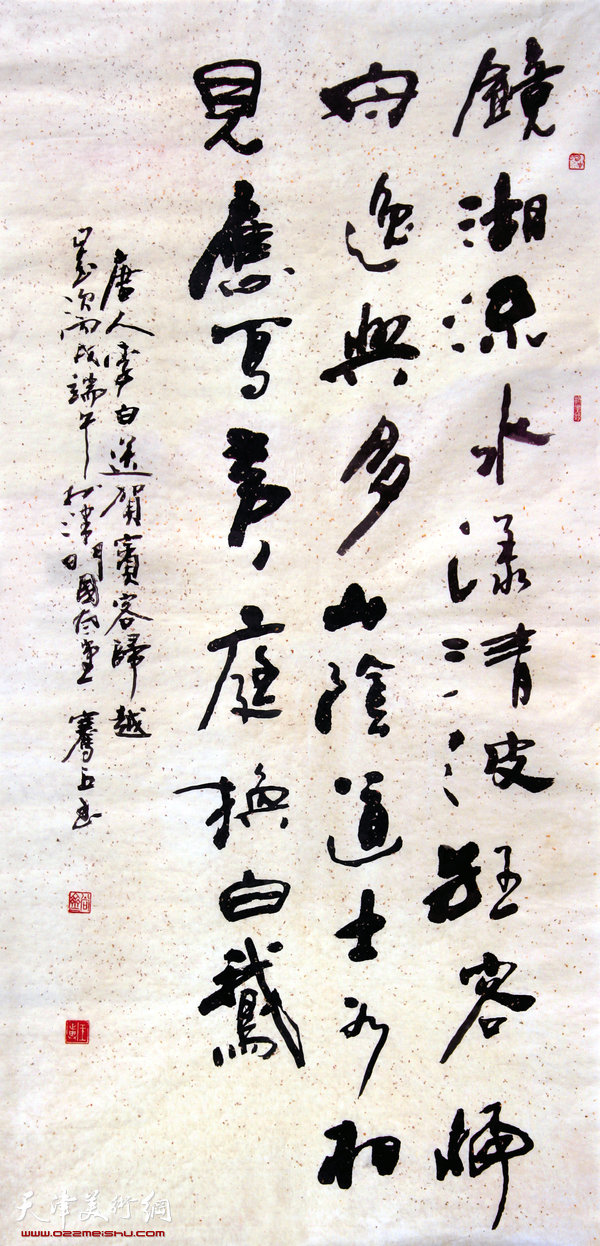 鏡湖流水漾清波狂客歸
舟逸興多山陰道士如相
見應写黃庭換白鵝
唐人李白送賀賓客歸越
歲次丙戌端午於津門國
天津美術網
www.022meishu.com